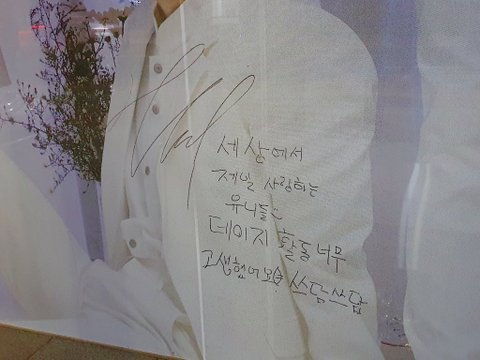 세상에서
제일 사랑하는
유니들
데이지 활동 너무
고생했어요 쓰담쓰담